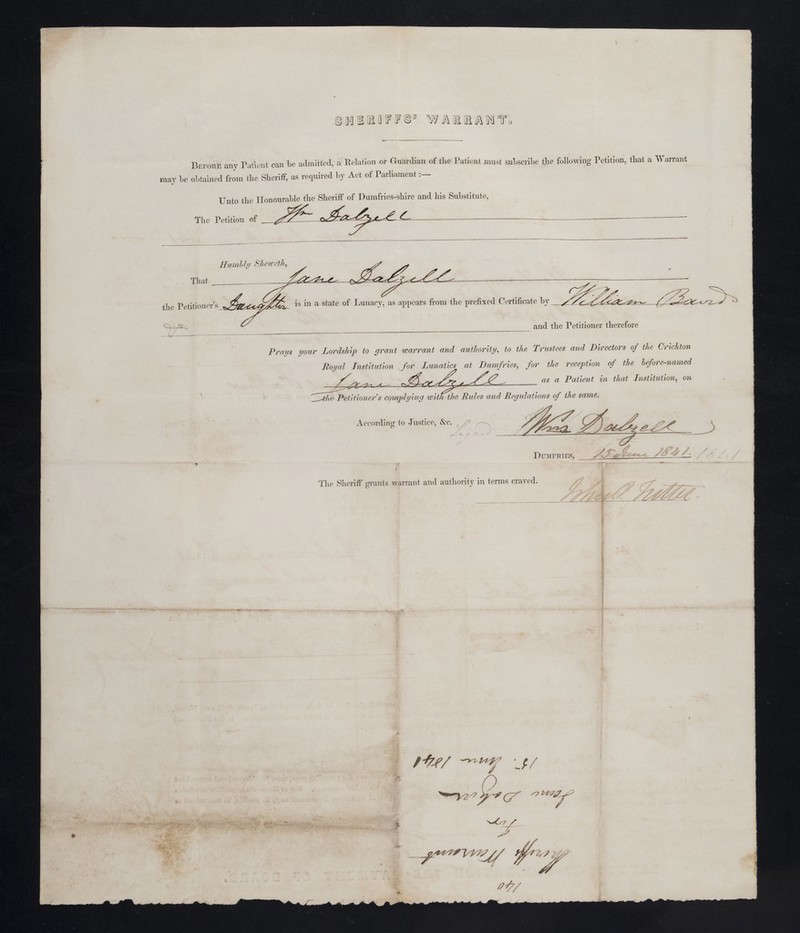 SHERIFFS' WARRANT.
BEFORE any Patient can be admitted, a Relation or Guardian of the Patient must subscribe the following Petition, that a Warrant
may be obtained from the Sheriff, as required by Act of Parliament :—
Unto the Honourable the Sheriff of Dumfries-shire and his Substitute,
The Petition of Wm Dalzell
Humbly Sheweth,
That Jane Dalzell
the Petitioner's Daughter is in a state of Lunacy, as appears from the prefixed Certificate by William Baird
and the Petitioner therefore
Prays your Lordship to grant warrant and authority, to the Trustees and Directors of the Crichton
Royal Institution for Lunatics at Dumfries, for the reception of the before-named
Jane Dalzell as a Patient in that Institution, on
the Petitioner's complying with the Rules and Regulations of the same.
According to Justice, &c. Signed Wm Dalzell
DUMFRIES, 15 June 1841 1841
The Sheriff grants warrant and authority in terms craved.
140
Sheriffs Warrant
For
Jane Dalzell
15. June 1841